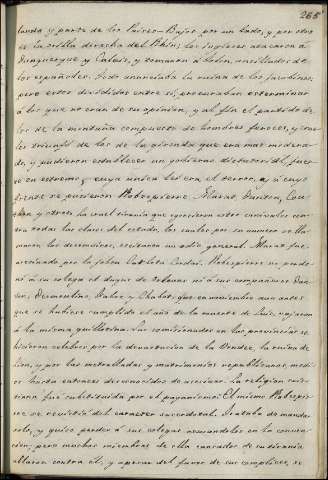 268
landa y parte de los Paises-Bajos por un lado, y por otro
de la orilla derecha del Rhin; los ingleses atacaron á
Dunquerque y Calais, y tomaron á Tolon, ausiliados de
los españoles. Todo anunciaba la ruina de los jacobinos;
pero estos divididos entre sí, procuraban esterminar
á los que no eran de su opinion, y al fin el partido de
los de la montaña compuesto de hombres feroces, y crue-
les triunfó del de los de la gironda que era mas modera-
do, y pudieron establecer un gobierno dictatorial, fuer-
te en estremo, cuya unica ley era el terror, y á cuyo
frente se pusieron Robespierre, Marat, Danton, Cou-
thon y otros: la cruel tirania que ejercieron estos criminales con-
tra todas las clases del estado, los cuales por su numero se lla-
maron los decenviros, escitaron un odio general. Marat fue
asesinado por la joven Carlota Corday. Robespierre no perdo-
nó á su colega el duque de Orleans ni á sus compañeros Dan-
ton, Desmoulins, y Chabot, que encumbidos aun antes
que se hubiese cumplido el año de la muerte de Luis, bajaron
á la misma guillotina. Los comisionados en las provincias se
hicieron celebres por la devastacion de la Vendée, la ruina de
Lion, y por las metralladas y matrimonios republicanos, medi-
os hasta entonces desconocidos de asesinar. La religion cris-
tiana fue substituida por el paganismo: El mismo Robespier-
re se revistió del caracter sacerdotal. Trataba de mandar
solo, y quiso perder á sus colegas acusandolos en la conven-
cion; pero muchos miembros de ella cansados de su tirania
allaron contra él, y apesar del furor de sus complices, se